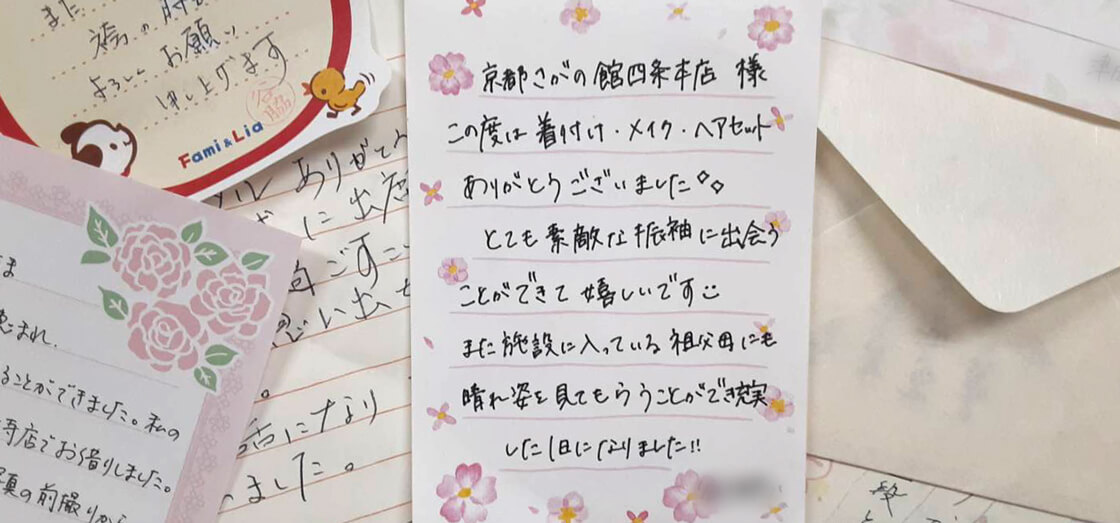 また
袴の
よろしくお願い
申し上げます
Fami & Lia
京都さがの館四条本店 様
この度は着付け・メイク・ヘアセット
ありがとうございました
とても素敵な振袖に出会う
ことができて嬉しいです
また施設に入っている祖父母にも
晴れ姿を見てもらうことができ充実
した1日になりました!!
ありがとう
に出店
ごすこ
思い出せ
になり
ました。
ま
恵まれ、
ることができました。私の
寺店でお借りしました。
真の前撮りから